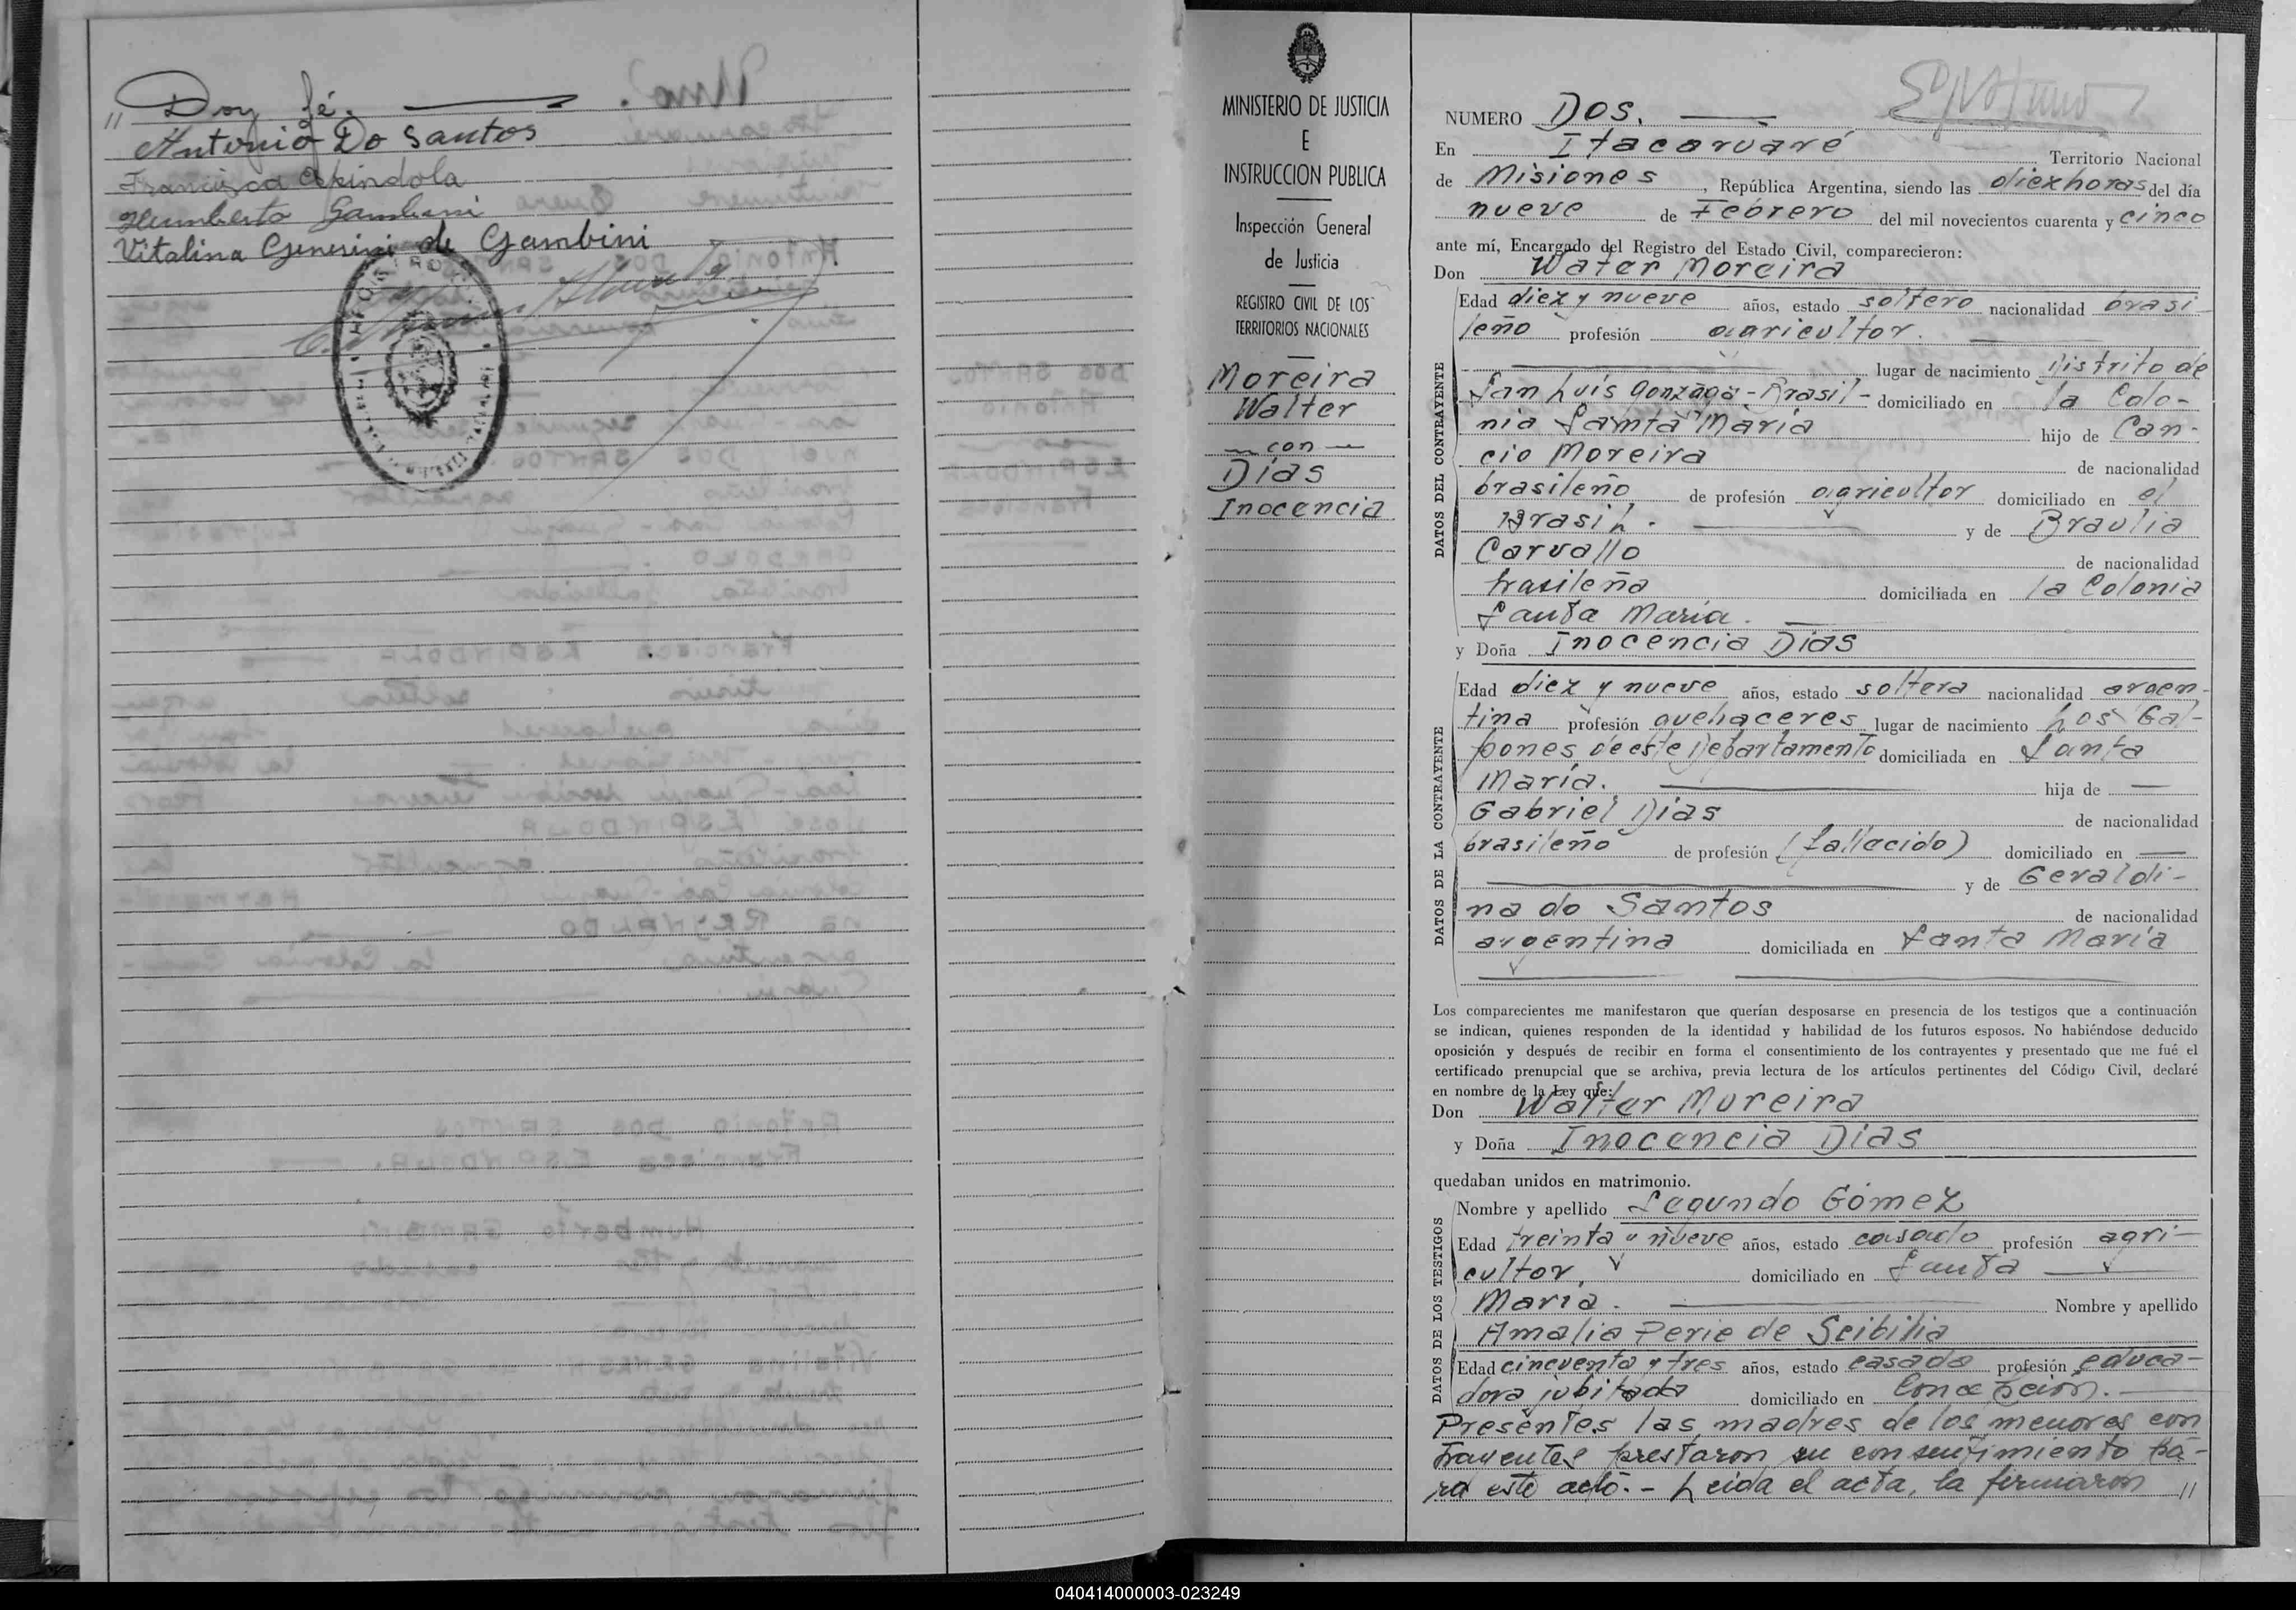 " Doy fé.
Antonio Do Santos
Francisca Espindola
Humberto Gambini
Vitalina Generini de Gambini
MINISTERIO DE JUSTICIA
E
INSTRUCCION PUBLICA
Inspección General
de Justicia
REGISTRO CIVIL DE LOS
TERRITORIOS NACIONALES
Moreira
Walter
— con —
Días
Inocencia
NUMERO Dos.
En Itacaruaré Territorio Nacional
de Misiones, República Argentina, siendo las diez horas del día
nueve de Febrero del mil novecientos cuarenta y cinco
ante mí, Encargado del Registro del Estado Civil, comparecieron:
Don Water Moreira
DATOS DEL CONTRAYENTE
Edad diez y nueve años, estado soltero nacionalidad brasi-
leño profesión agricultor.
lugar de nacimiento Distrito de
San Luis Gonzaga-Brasil- domiciliado en la Colo-
nia Santa María hijo de Can-
cio Moreira de nacionalidad
brasileño de profesión agricultor domiciliado en el
Brasil. y de Braulia
Carvallo de nacionalidad
brasileña domiciliada en la Colonia
Santa María.
y Doña Inocencia Dias
DATOS DE LA CONTRAYENTE
Edad diez y nueve años, estado soltera nacionalidad argen-
tina profesión quehaceres lugar de nacimiento Los Gal-
pones de este Departamento domiciliada en Santa
María. hija de —
Gabriel Dias de nacionalidad
brasileño de profesión (fallecido) domiciliado en —
y de Geraldi-
na do Santos de nacionalidad
argentina domiciliada en Santa María
Los comparecientes me manifestaron que querían desposarse en presencia de los testigos que a continuación
se indican, quienes responden de la identidad y habilidad de los futuros esposos. No habiéndose deducido
oposición y después de recibir en forma el consentimiento de los contrayentes y presentado que me fué el
certificado prenupcial que se archiva, previa lectura de los artículos pertinentes del Código Civil, declaré
en nombre de la Ley que:
Don Walter Moreira
y Doña Inocencia Dias
quedaban unidos en matrimonio.
DATOS DE LOS TESTIGOS
Nombre y apellido Segundo Gómez
Edad treinta y nueve años, estado casado profesión agri-
cultor, domiciliado en Santa
María. Nombre y apellido
Amalia Perie de Scibilia
Edad cincuenta y tres años, estado casada profesión educa-
dora jubilada domiciliado en Concepción.
Presentes las madres de los menores con
trayentes prestaron su consentimiento pa-
ra este acto.- Leida el acta, la firmaron "
040414000003-023249